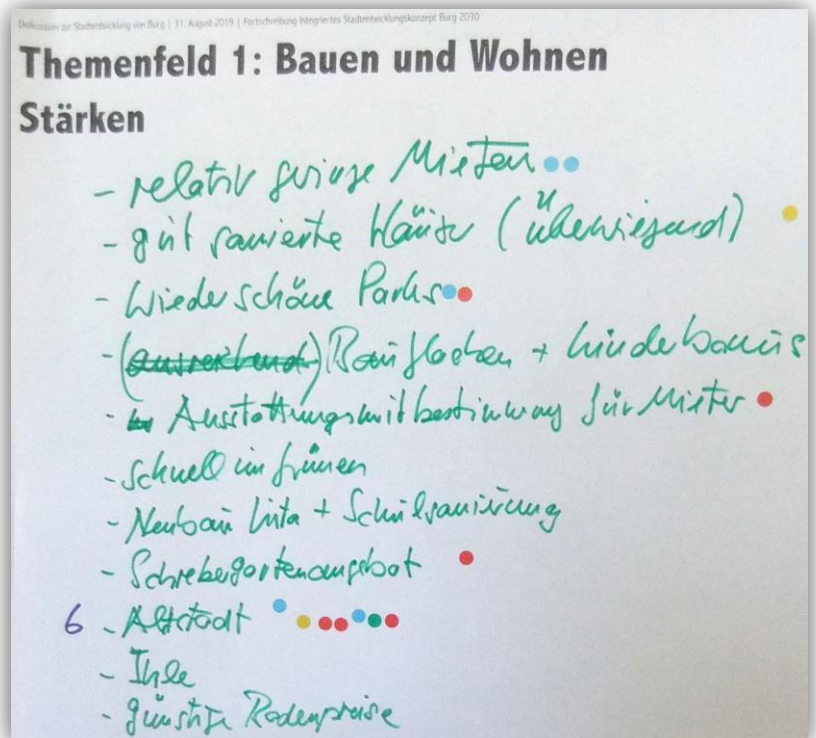 Diskussion zur Stadtentwicklung von Burg | 31. August 2019 | Fortschreibung Integriertes Stadtentwicklungskonzept Burg 2030
Themenfeld 1: Bauen und Wohnen
Stärken
- relativ geringe Mieten
- gut sanierte Häuser (überwiegend)
- Wieder schöne Parks
- (ausreichend) Bauflächen +
- Ausstattungsmitbestimmung für Mieter
- Schnell im Grünen
- Neubau Kita + Schulsanierung
- Schrebergartenangebot
6 - Altstadt
- Ihle
- günstige Bodenpreise